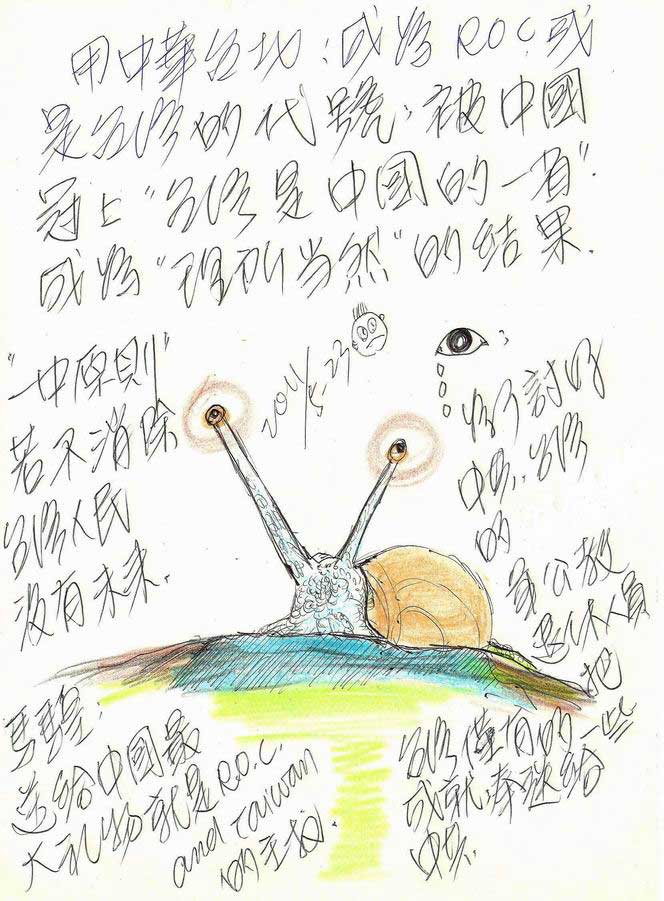 用中華台北:成為R.O.C.或
是台灣的代號,被中國
冠上"台灣是中國的一省".
成為"理所当然"的結果.
2011/5-23
"一中原則"
若不消除
台灣人民
沒有未來.
為了討好
中共.台灣
的
軍公教
退休人員
把
台灣僅有的一些
成就奉送給
中共.
送給中國最
大礼物就是R.O.C.
and Taiwan
的主权.